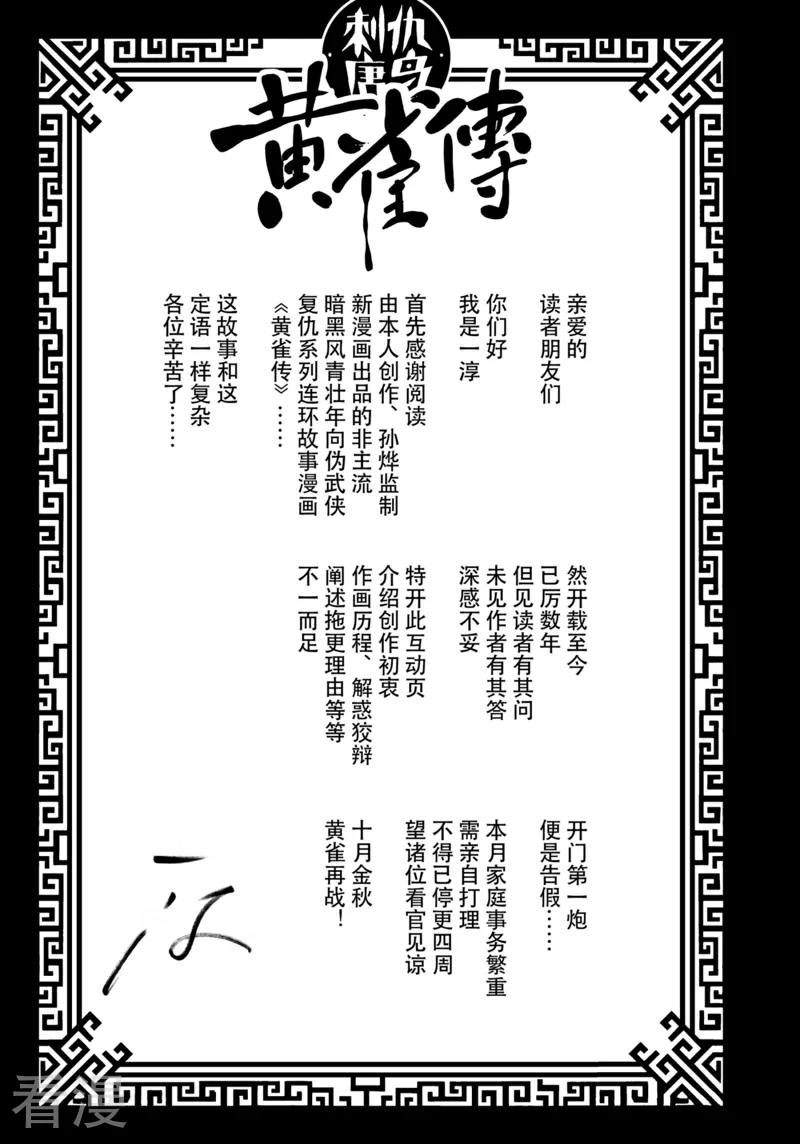 刺仇
黄雀傳
亲爱的
读者朋友们
你们好
我是一淳
首先感谢阅读
由本人创作、孙烨监制
新漫画出品的非主流
暗黑风青壮年向伪武侠
复仇系列连环故事漫画
《黄雀传》……
这故事和这
定语一样复杂
各位辛苦了……
然开载至今
已厉数年
但见读者有其问
未见作者有其答
深感不妥
特开此互动页
介绍创作初衷
作画历程、解惑狡辩
阐述拖更理由等等
不一而足
开门第一炮
便是告假……
本月家庭事务繁重
需亲自打理
不得已停更四周
望诸位看官见谅
十月金秋
黄雀再战！
看漫